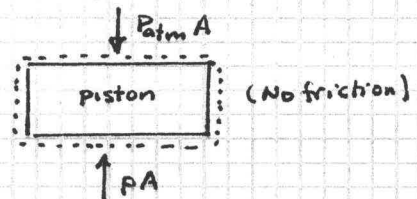 Patm A
piston
(No friction)
pA